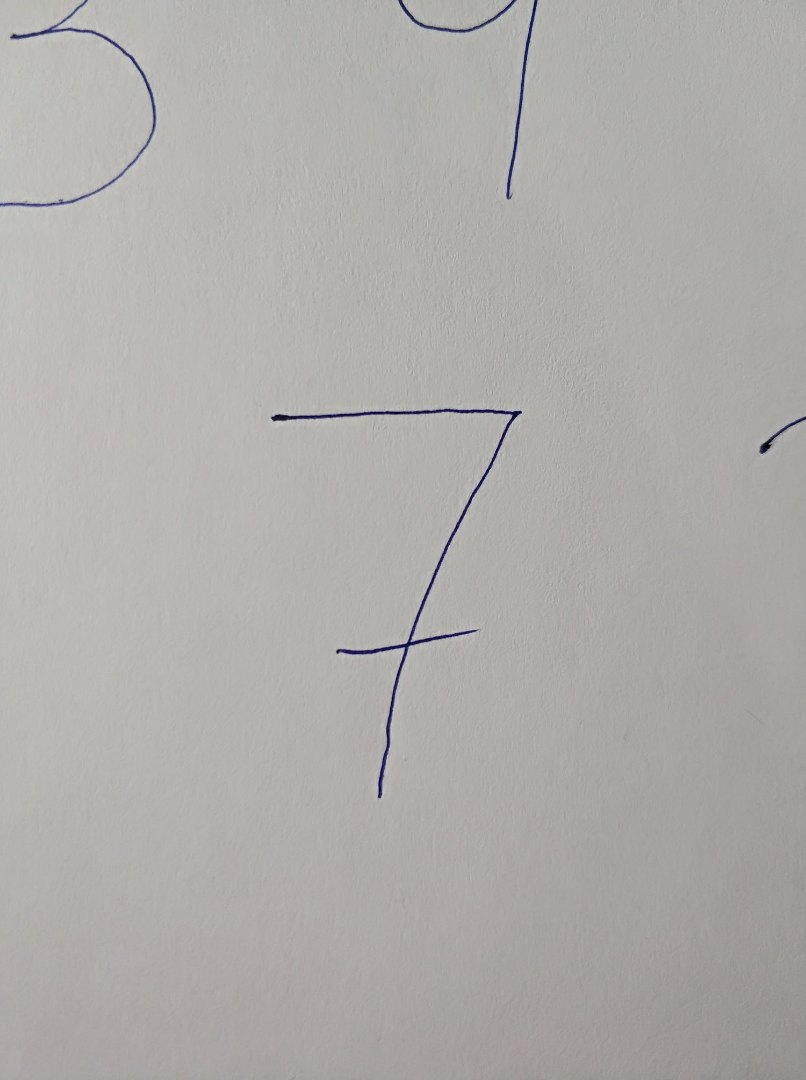 3 9
7